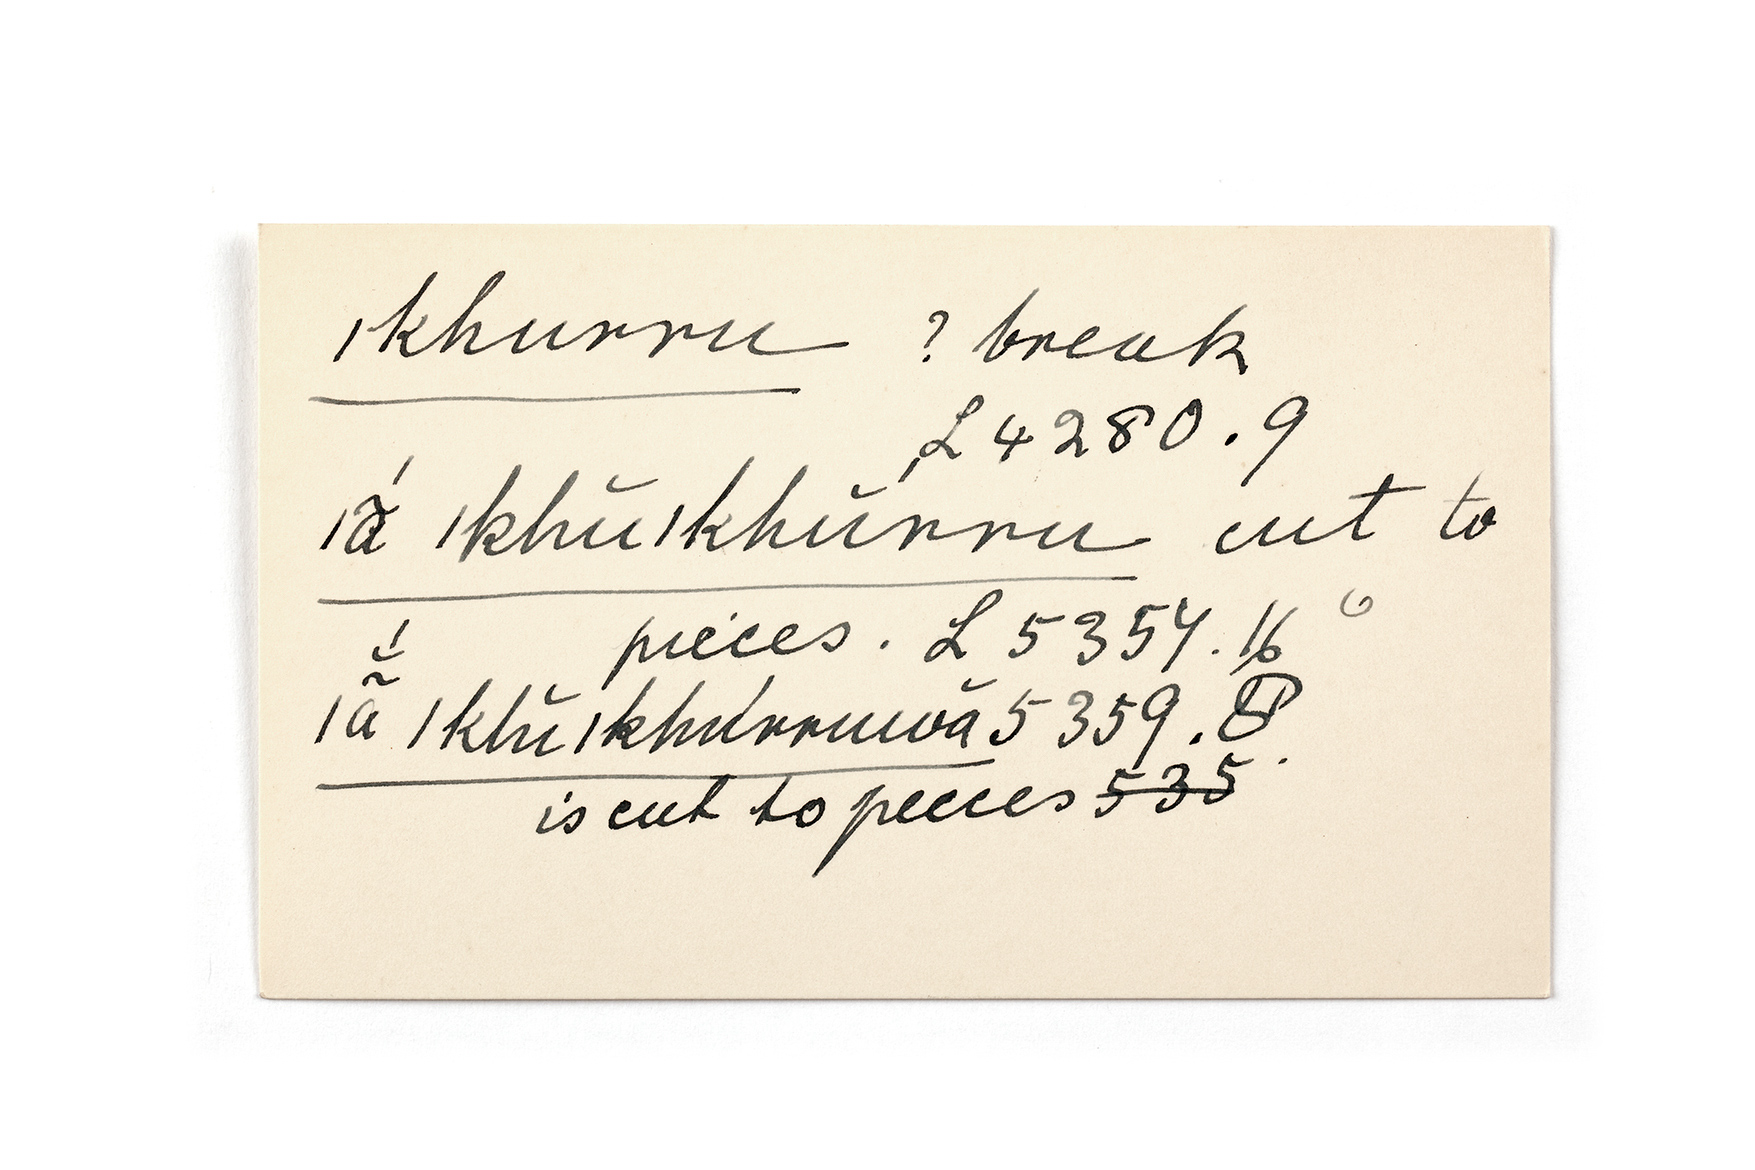 ǀkhurru ? break
L 4280.9
ǀã́ ǀkhŭǀkhŭrru cut to
pieces. L 5354.16
ǀã̆́ ǀkhŭǀkhúrruwă 5359.8
is cut to pieces 535